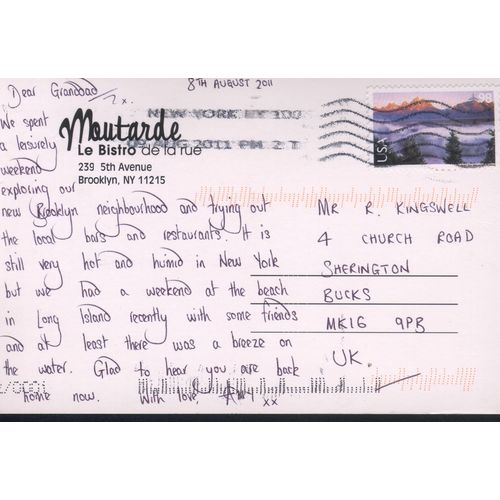 8TH AUGUST 2011
Dear Granddad
We spent
a leisurely
weekend
exploring our
new Brooklyn neighbourhood and trying out
the local bars and restaurants. It is
still very hot and humid in New York
but we had a weekend at the beach
in Long Island recently with some friends
and at least there was a breeze on
the water. Glad to hear you are back
home now. With love, Amy xx
Moutarde
Le Bistro de la rue
239 5th Avenue
Brooklyn, NY 11215
NEW YORK NY 100
09 AUG 2011 PM 2 T
USA
98
MR R. KINGSWELL
4 CHURCH ROAD
SHERINGTON
BUCKS
MK16 9PB
UK.